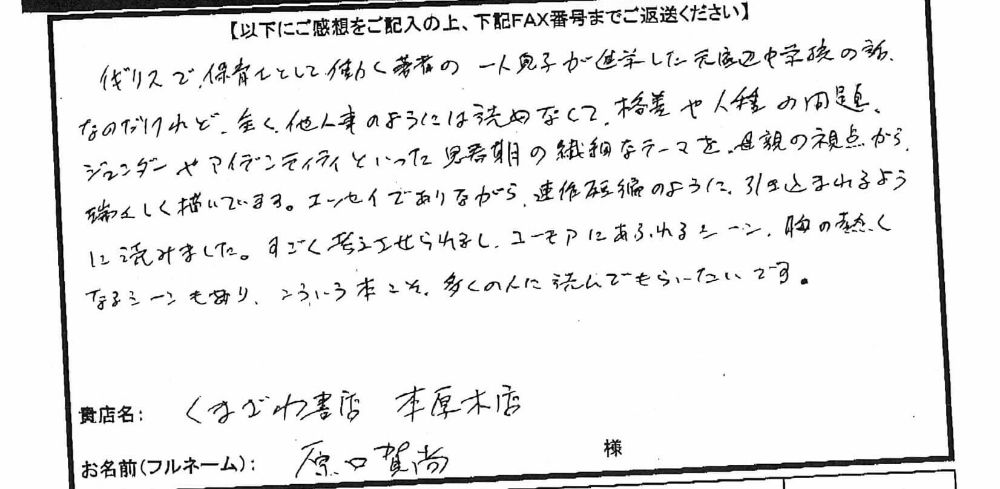 【以下にご感想をご記入の上、下記FAX番号までご返送ください】
イギリスで、保育士として働く著者の一人息子が進学した元底辺中学校の話、
なのだけれど、全く、他人事のようには読めなくて、格差や人種の問題、
ジェンダーやアイデンティティといった思春期の繊細なテーマを、母親の視点から、
瑞々しく描いています。エッセイでありながら、連作短編のように、引き込まれるよう
に読みました。すごく考えさせられるし、ユーモアにあふれるシーン、胸の熱く
なるシーンもあり、こういう本こそ、多くの人に読んでもらいたいです。
貴店名: くまざわ書店 本厚木店
お名前(フルネーム): 原口賀尚 様